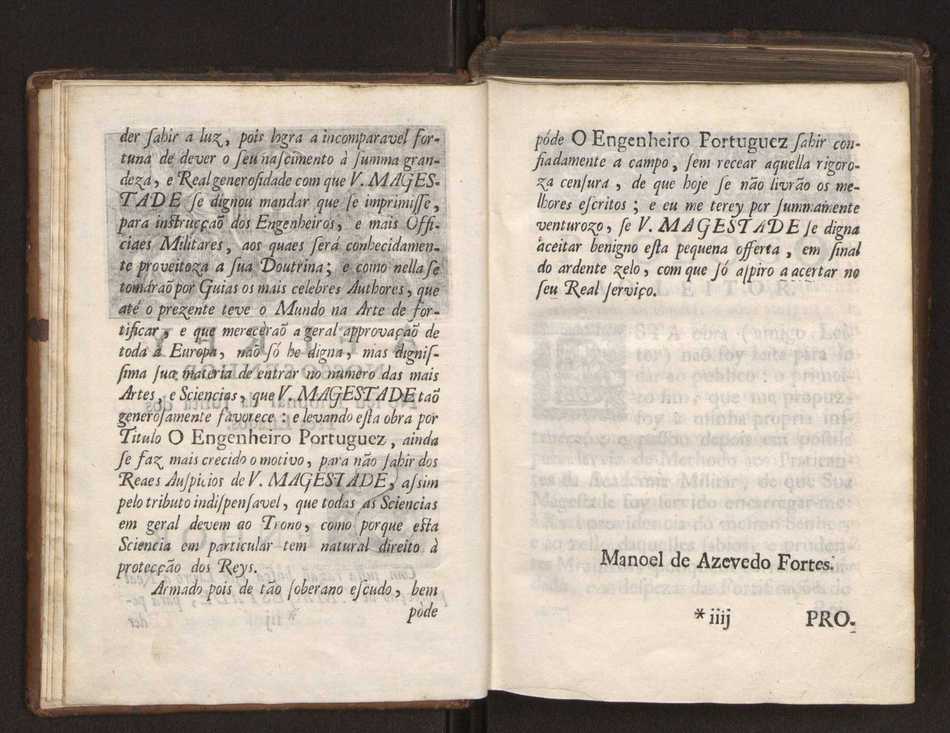 der ſahir a luz, pois logra a incomparavel for-
tuna de dever o ſeu naſcimento à ſumma gran-
deza, e Real generoſidade com que V. MAGES-
TADE ſe dignou mandar que ſe imprimiſſe,
para inſtrucçaõ dos Engenheiros, e mais Offi-
ciaes Militares, aos quaes ſerá conhecidamen-
te proveitoza a ſua Doutrina; e como nella ſe
tomáraõ por Guias os mais celebres Authores, que
até o prezente teve o Mundo na Arte de for-
tificar, e que merecerаõ a geral approvaçaõ de
toda a Europa, naõ ſó he digna, mas digniſ-
ſima ſua materia de entrar no numero das mais
Artes, e Sciencias, que V. MAGESTADE taõ
generoſamente favorece: e levando eſta obra por
Titulo O Engenheiro Portuguez, ainda
ſe faz mais crecido o motivo, para não ſahir dos
Reaes Auſpicios de V. MAGESTADE, aſsim
pelo tributo indiſpenſavel, que todas as Sciencias
em geral devem ao Trono, como porque eſta
Sciencia em particular tem natural direito à
protecção dos Reys.
Armado pois de tão ſoberano eſcudo, bem
póde
póde O Engenheiro Portuguez ſahir con-
fiadamente a campo, ſem recear aquella rigoro-
za cenſura, de que hoje ſe não livrão os me-
lhores eſcritos; e eu me terey por ſummamente
venturozo, ſe V. MAGESTADE ſe digna
aceitar benigno eſta pequena offerta, em ſinal
do ardente zelo, com que ſó aſpiro a acertar no
ſeu Real ſerviço.
Manoel de Azevedo Fortes.
*iiij PRO-